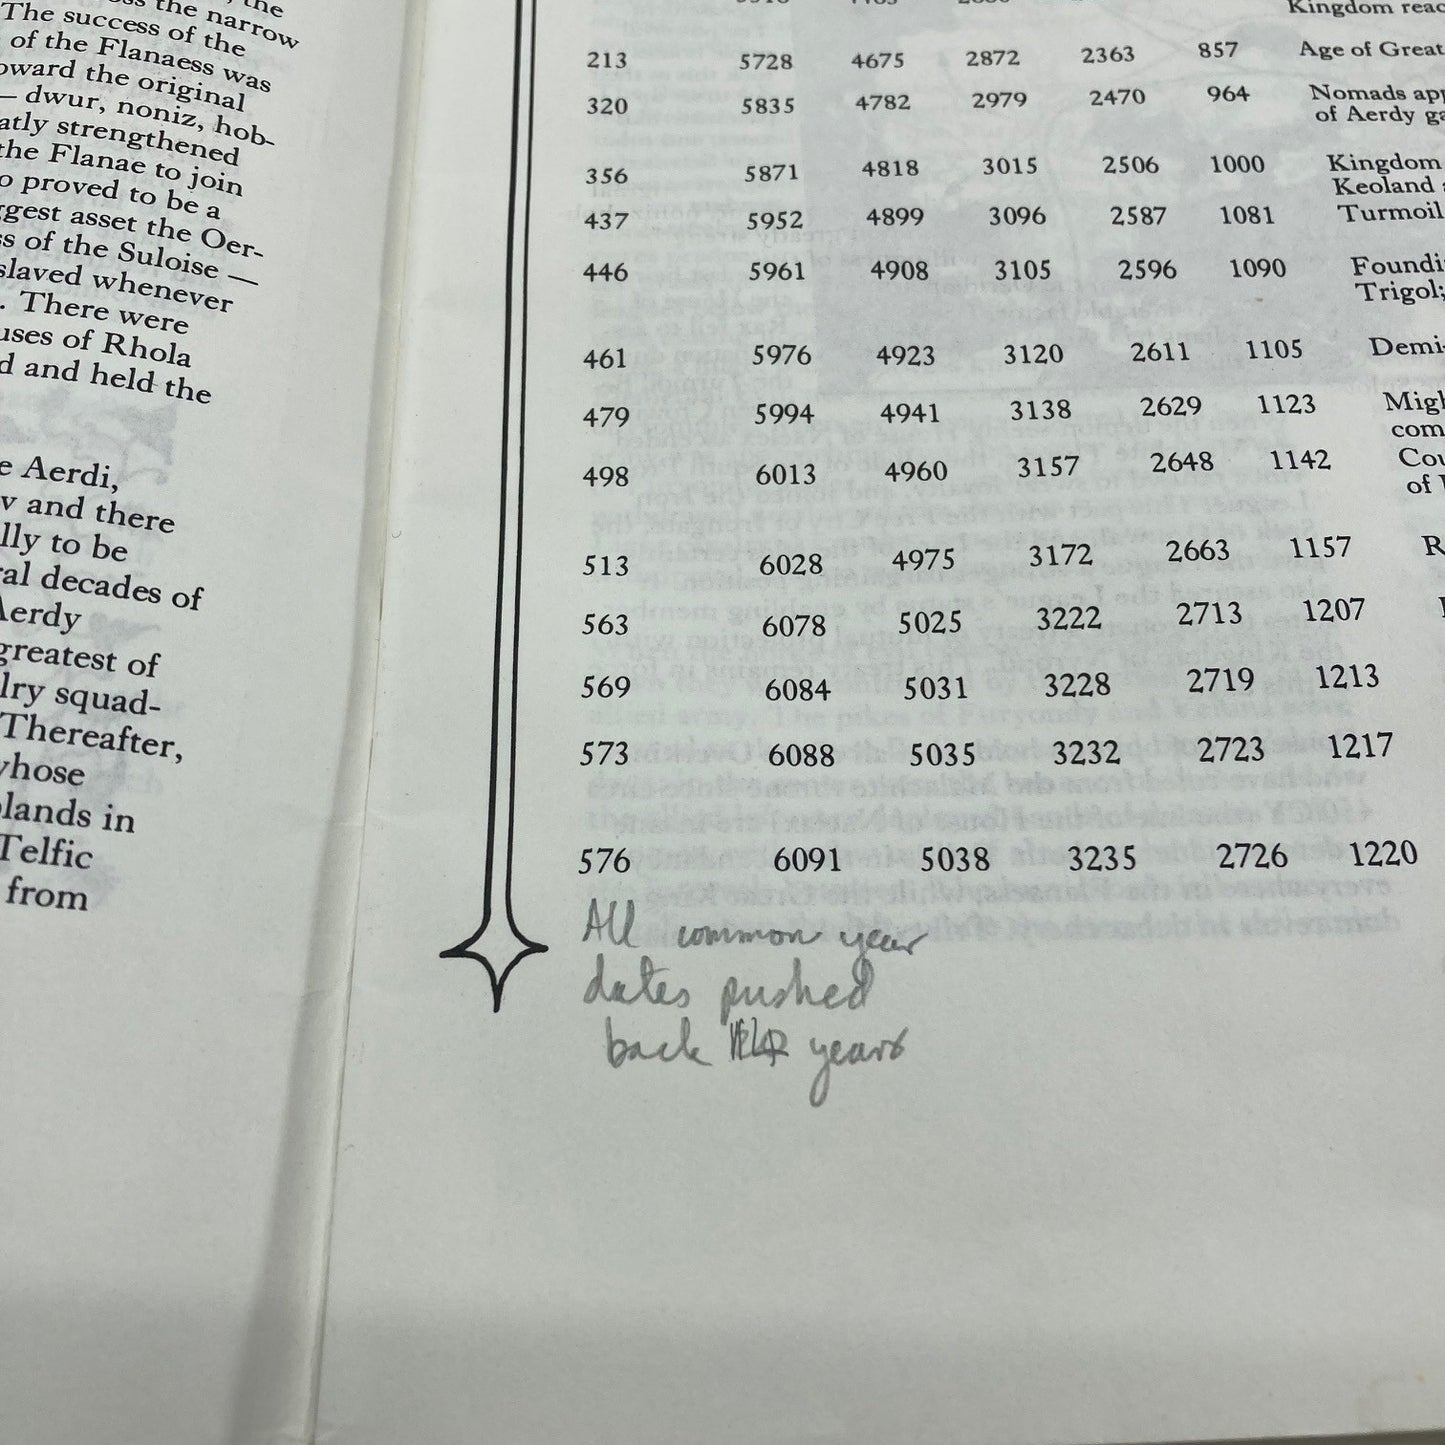 the narrow
The success of the
of the Flanaess was
oward the original
— dwur, noniz, hob-
atly strengthened
the Flanae to join
o proved to be a
ggest asset the Oer-
ss of the Suloise —
slaved whenever
. There were
uses of Rhola
d and held the
e Aerdi,
w and there
lly to be
ral decades of
Aerdy
greatest of
lry squad-
Thereafter,
whose
lands in
Telfic
from
Kingdom reac
213 5728 4675 2872 2363 857 Age of Great
320 5835 4782 2979 2470 964 Nomads app
of Aerdy ga
356 5871 4818 3015 2506 1000 Kingdom
Keoland
437 5952 4899 3096 2587 1081 Turmoil
446 5961 4908 3105 2596 1090 Foundi
Trigol;
461 5976 4923 3120 2611 1105 Demi-
479 5994 4941 3138 2629 1123 Migh
com
498 6013 4960 3157 2648 1142 Cou
of
513 6028 4975 3172 2663 1157 R
563 6078 5025 3222 2713 1207
569 6084 5031 3228 2719 1213
573 6088 5035 3232 2723 1217
576 6091 5038 3235 2726 1220
All common year
dates pushed
back years